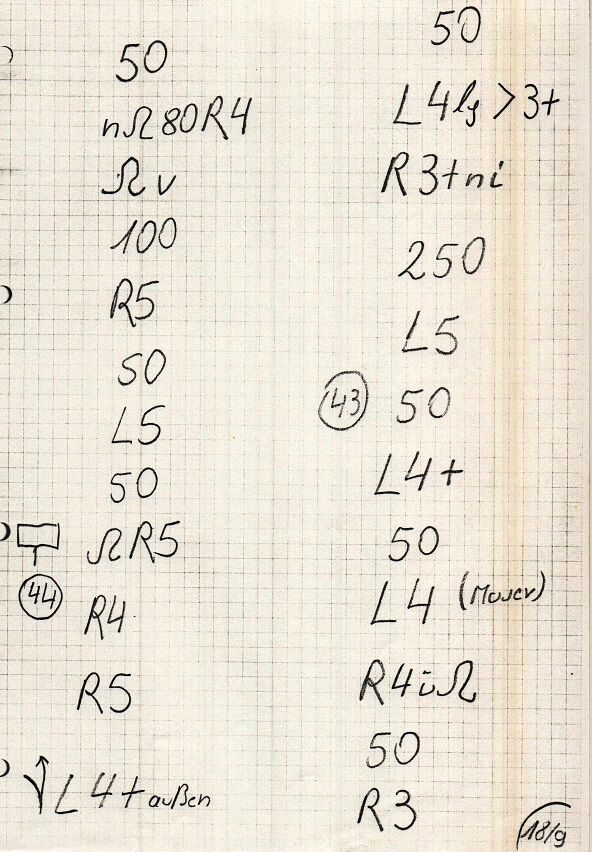 50
nΩ80R4
Ωv
100
R5
50
L5
50
ΩR5
44
R4
R5
L4+außen
50
L4lg>3+
R3+ni
250
L5
43 50
L4+
50
L4 (Mauer)
R4üΩ
50
R3
18/9